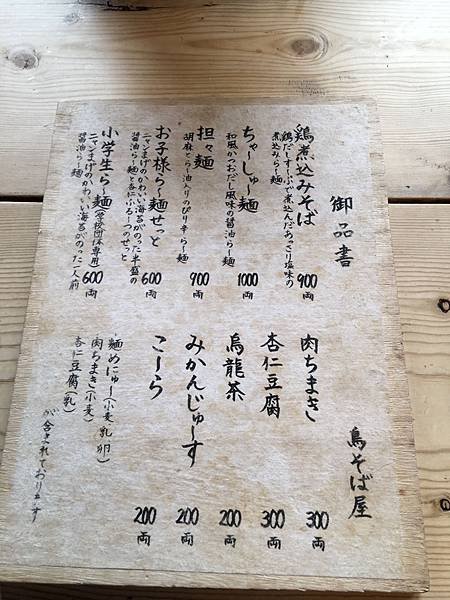 御品書
鶏煮込みそば
鶏だしすーぷで煮込んだあっさり塩味の
煮込みらー麺
900両
ちゃーしゅー麺
和風かつおだし風味の醤油らー麺
1000両
担々麺
胡麻とらー油入りのぴり辛らー麺
900両
お子様らー麺せっと
ニャンまげのかわいい海苔がのった半盛の
醤油らー麺と杏仁ふるーつのせっと
600両
小学生らー麺(学校団体専用)
ニャンまげのかわいい海苔がのった一人前
醤油らー麺
600両
鳥そば屋
肉ちまき
300両
杏仁豆腐
300両
烏龍茶
200両
みかんじゅーす
200両
こーら
200両
麺めにゅー(小麦乳卵)
肉ちまき(小麦)
杏仁豆腐(乳)
が含まれております